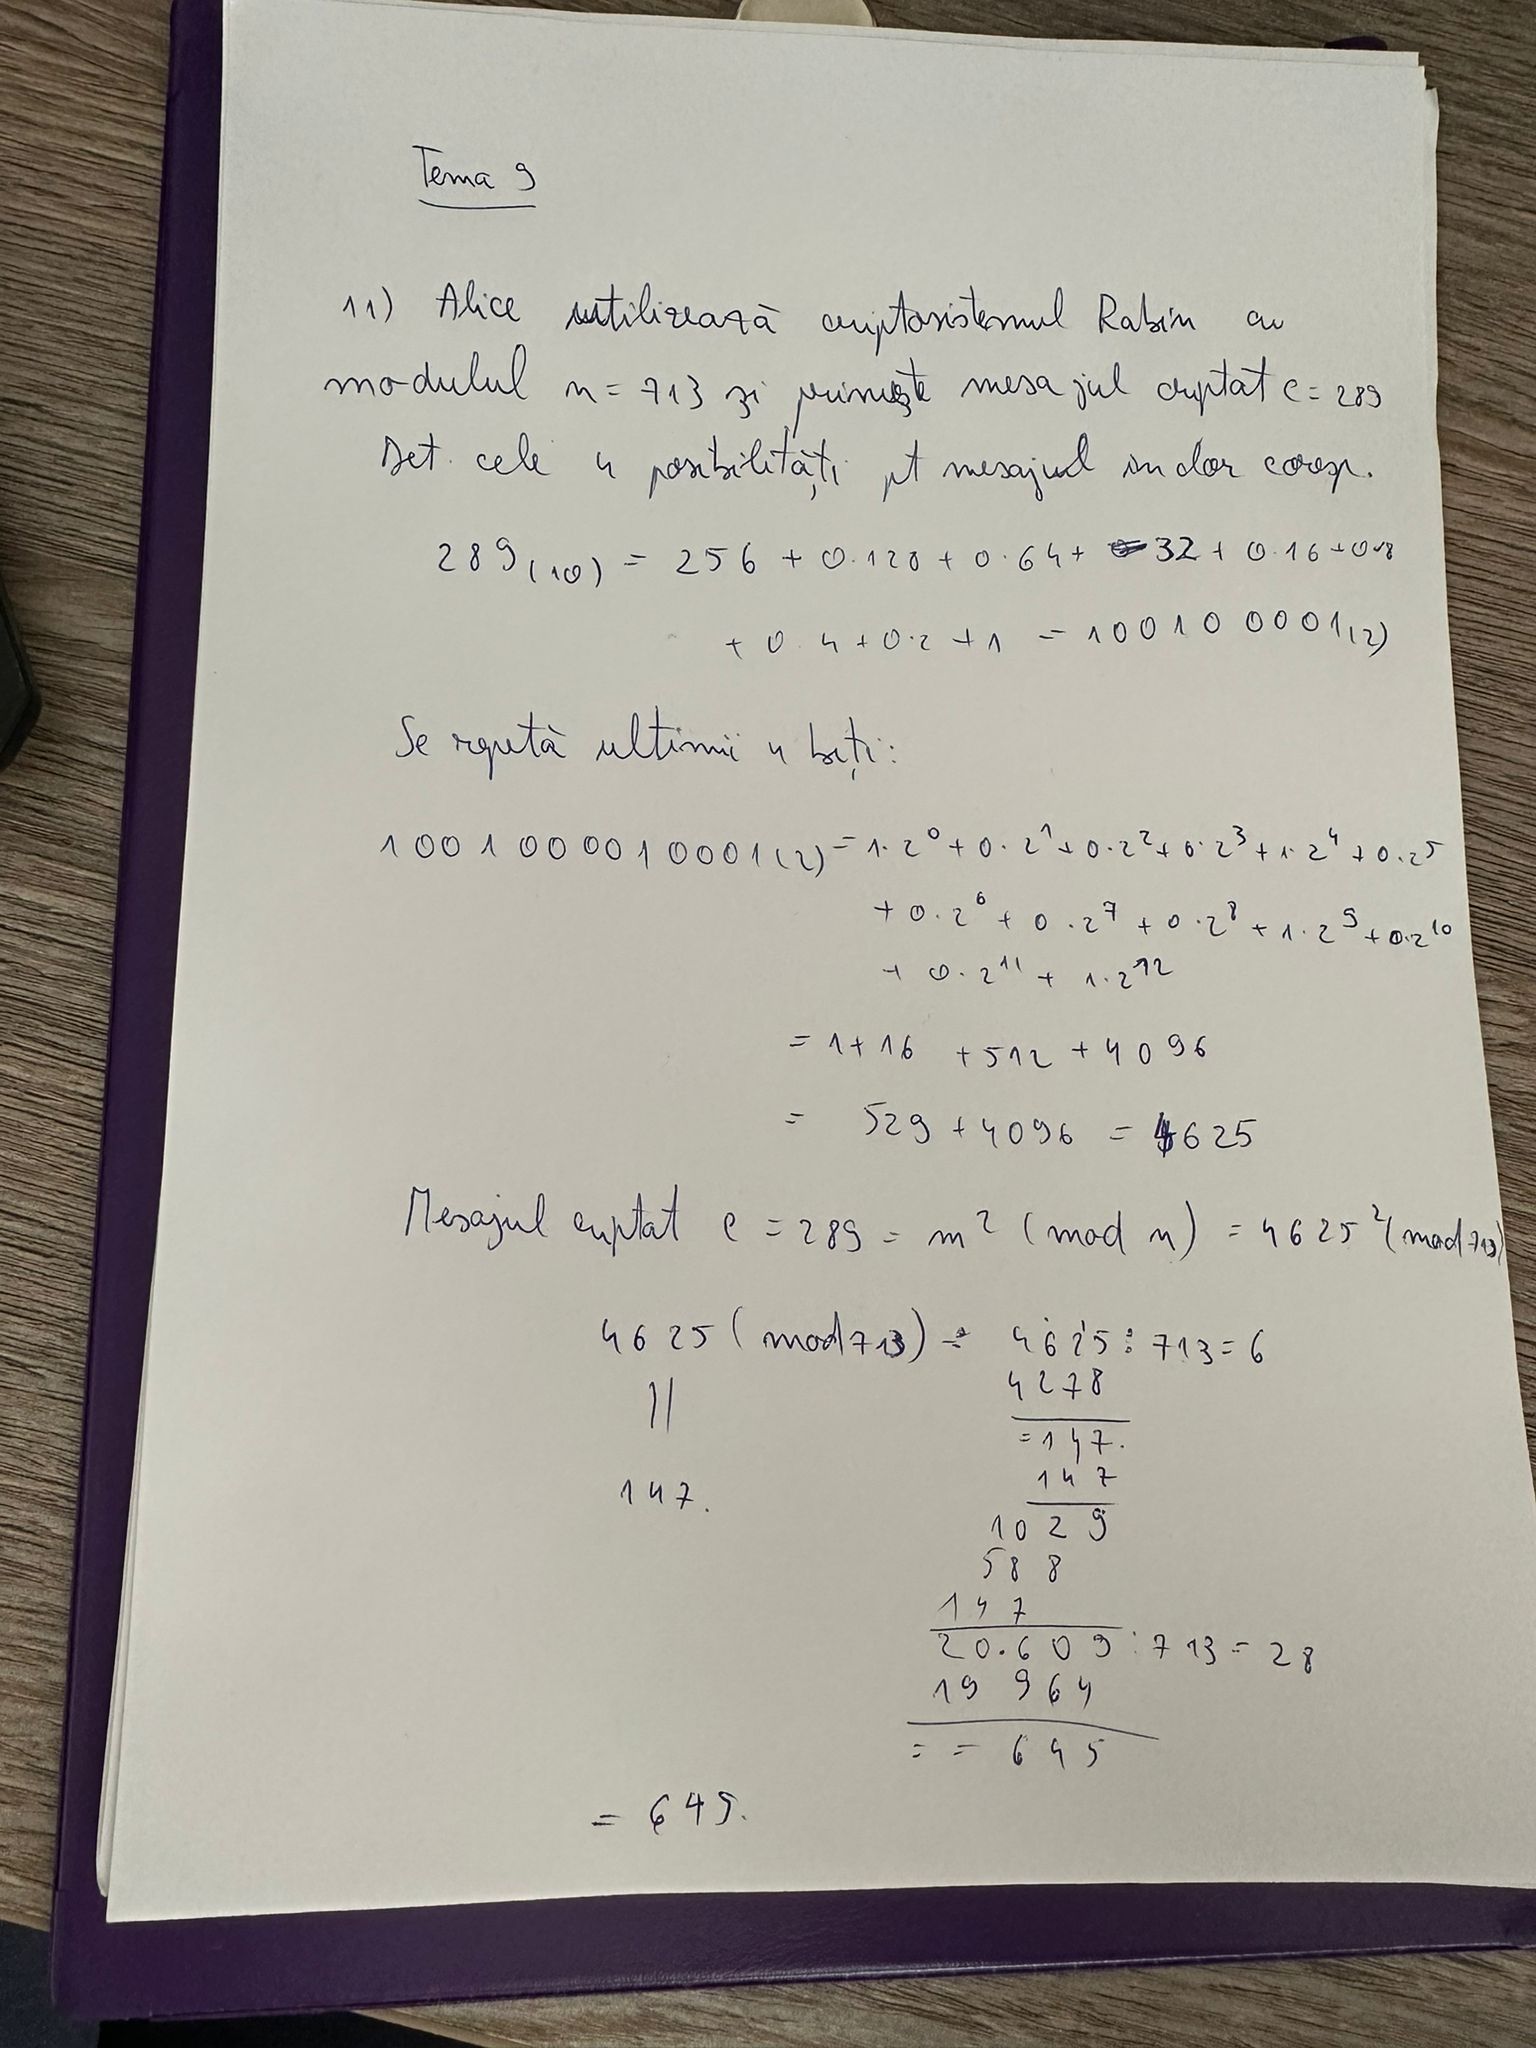 Tema 9
11) Alice utilizează criptosistemul Rabin cu
modulul n = 713 și primește mesajul criptat c = 289
Det. cele 4 posibilități pt mesajul in clar coresp.
289(10) = 256 + 0·128 + 0·64 + 32 + 0·16 + 0·8
+ 0·4 + 0·2 + 1 = 100100001(2)
Se repetă ultimii 4 biți:
1001000010001(2) = 1·2⁰ + 0·2¹ + 0·2² + 0·2³ + 1·2⁴ + 0·2⁵
+ 0·2⁶ + 0·2⁷ + 0·2⁸ + 1·2⁹ + 0·2¹⁰
+ 0·2¹¹ + 1·2¹²
= 1 + 16 + 512 + 4096
= 529 + 4096 = 4625
Mesajul criptat c = 289 = m² (mod n) = 4625² (mod 713)
4625 (mod 713) = 4625 : 713 = 6
4278
= 147.
147
147.
1029
588
147
20.609 : 713 = 28
19 964
= = 645
= 645.